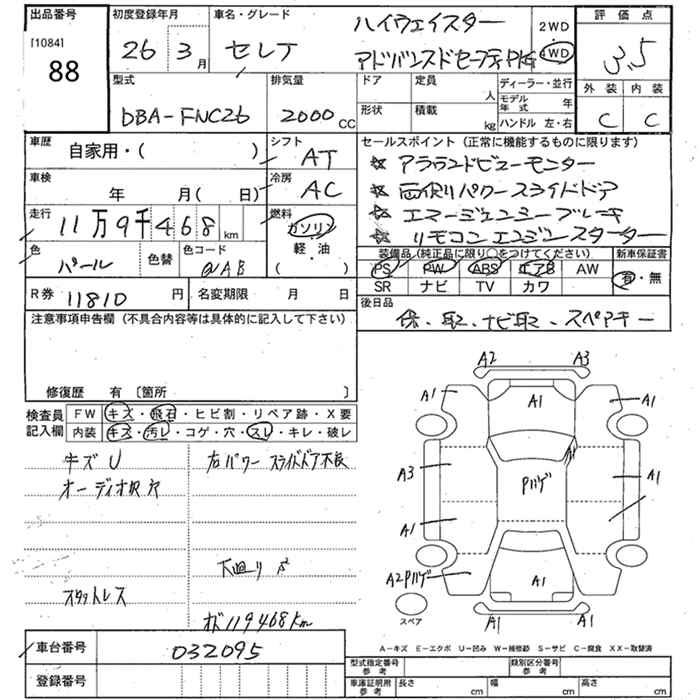 出品番号 初度登録年月 車名・グレード ハイウェイスター 2WD 評価点
[1084] 88 26 3月 セレナ アドバンスドセーフティPKG 4WD 3.5
型式 排気量 ドア 定員 人 ディーラー・並行 外装 内装
DBA-FNC26 2000cc 形状 積載 kg モデル年式 年 ハンドル 左・右 C C
車歴 自家用・( ) シフト AT セールスポイント(正常に機能するものに限ります)
☆ アラウンドビューモニター
車検 年 月( 日) 冷房 AC ☆ 両側パワースライドドア
走行 11万9千468km 燃料 ガソリン 軽・油 ( ) ☆ エマージェンシーブレーキ
☆ リモコンエンジンスターター
色 パール 色替 色コード QAB 装備品(純正品に限り○をつけてください) 新車保証書
PS PW ABS エアB AW 有・無
R券 11810円 名変期限 月 日 SR ナビ TV カワ
注意事項申告欄(不具合内容等は具体的に記入して下さい) 後日品
保、取、ナビ取、スペアキー
修復歴 有 [箇所 ]
検査員記入欄 FW キズ・飛石・ヒビ割・リペア跡・X要
内装 キズ・汚レ・コゲ・穴・スレ・キレ・破レ
キズU 右パワースライドドア不良
オーディオ取穴
下廻りS2
スタットレス
オド119468km
A2 A3
A1 A1 A1
A1
A3 Pハゲ A1
A1
A2Pハゲ A1
スペア A1 A1
A-キズ E-エクボ U-凹み W-補修跡 S-サビ C-腐食 XX-取替済
車台番号 032095
登録番号
型式指定番号 参考 類別区分番号 参考
車庫証明用 参考 長さ cm 幅 cm 高さ cm